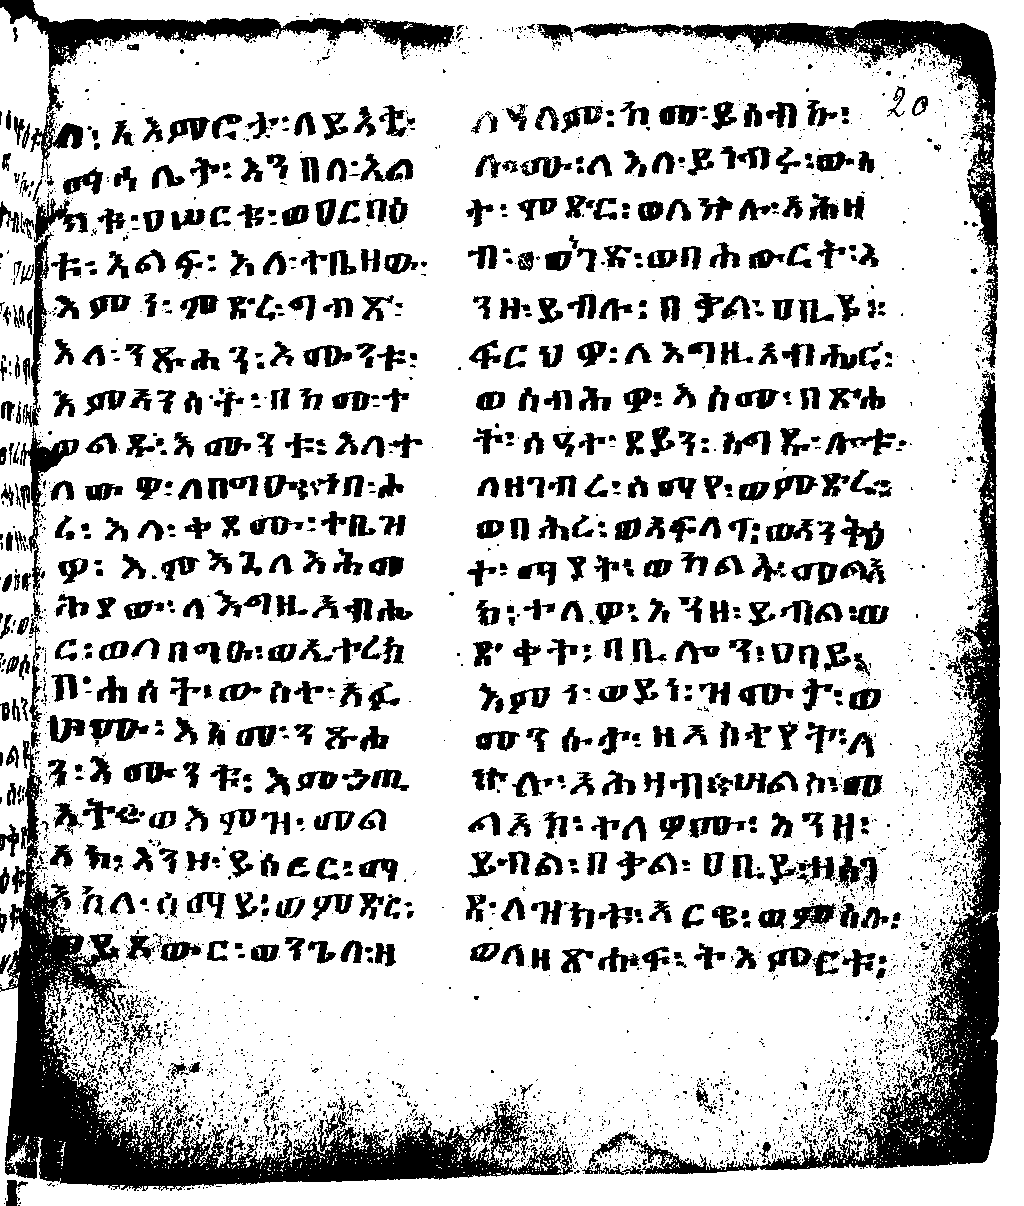 ለ፡ አእምሮታ፡ ለይእቲ፡
ማኅሌት፡ እንበለ፡ አል
ክቱ፡ ሀሠርቱ፡ ወሀርበዕ
ቱ፡ እልፍ፡ እለ፡ ተቤዘው፡
እምን፡ ምድረ፡ ግብጽ፡
እለ፡ ንጹሐን፡ እሙንቱ፡
እምአንስት፡ በከመ፡ ተ
ወልዱ፡ እሙንቱ፡ እለ፡ ተ
ለውዎ፡ ለበግዐ
ር፡ እለ፡ ቀደሙ፡ ተቤዝ
ዎ፡ እምእጓለ እመ
ሕያው፡ ለእግዚአብሔ
ር፡ ወለበግዑ፡ ወኢተረክ
በ፡ ሐሰት፡ ውስተ፡ አፉ
ሆሙ፡ እስመ፡ ንጹሐ
ን፡ እሙንቱ፡ እምኃጢ
አት ወእምዝ፡ መል
አክ፡ እንዘ፡ ይሰርር፡ ማ
እከለ፡ ሰማይ፡ ወምድር፡
ወይጸውር፡ ወንጌለ፡ ዘ
ለዓለም፡ ከመ፡ ይስብክ፡
ሎሙ፡ ለእለ፡ ይነብሩ፡ ውስ
ተ፡ ምድር፡ ወለኵሉ፡ አሕዛ
ብ፡ ወነገድ፡ ወበሐውርት፡ እ
ንዘ፡ ይብሉ፡ በቃል፡ ሀቢይ፡
ፍርህዎ፡ ለእግዚአብሔር፡
ወሰብሕዎ፡ እስመ፡ በጽሐ
ት፡ ሰዓተ፡ ደይን፡ ስግዱ፡ ሎቱ፡
ለዘገብረ፡ ሰማየ፡ ወምድረ፡
ወበሕረ፡ ወአፍላግ፡ ወአንቅዕ
ተ፡ ማያት፡ ወካልእ፡ መልአ
ክ፡ ተለዎ፡ እንዘ፡ ይብል፡ ወ
ድቀት፡ ባቢሎን፡ ሀባይ፡
እምነ፡ ወይነ፡ ዝሙታ፡ ወ
መንሱታ፡ ዘአስተየት፡ ለ
ኵሉ፡ አሕዛብ፡ ወሣልስ፡ መ
ልአክ፡ ተለዎሙ፡ እንዘ፡
ይብል፡ በቃል፡ ሀቢይ፡ ዘሰገ
ደ፡ ለዝክቱ፡ አርዌ፡ ወምስሉ፡
ወለዘጽሑፍ፡ ትእምርቱ፡